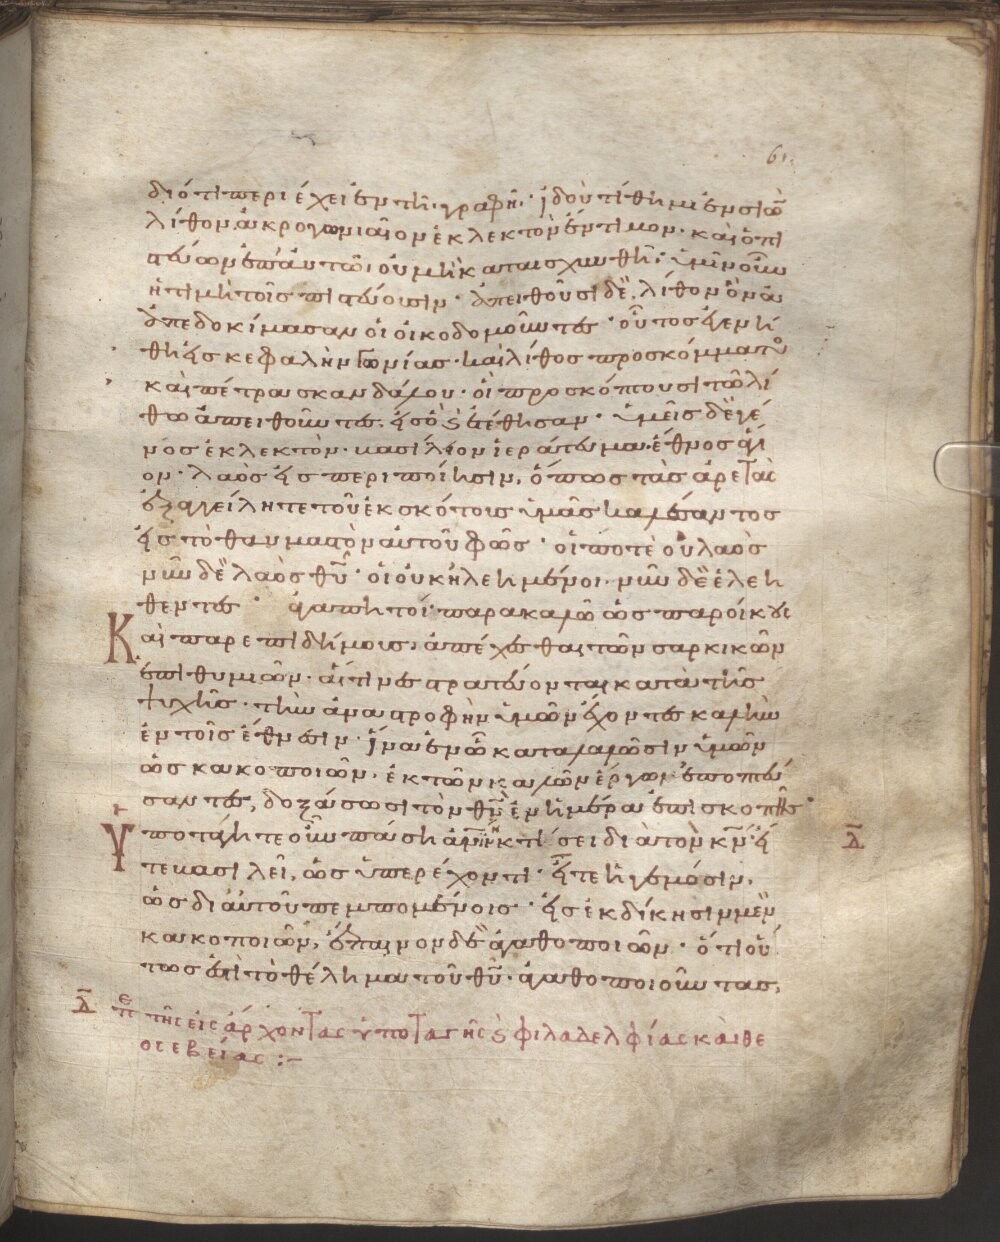 61
διότι περιέχει ἐν τῆ γραφῆ· ἰδοὺ τίθημι ἐν σιὼν
λίθον ἀκρογωνιαῖον ἐκλεκτὸν ἔντιμον· καὶ ὁ πι
στεύων ἐπ' ἀυτῶ οὐ μὴ καταισχυνθῆ· ὑμῖν οὖν
ἡ τιμὴ τοῖς πιστεύουσιν· ἀπειθοῦσι δὲ, λίθον ὃν ἀ
ἀπεδοκίμασαν οἱ οἰκοδομοῦντες· οὗτος ἐγενή
θη εἰς κεφαλὴν γωνίας· καὶ λίθος προσκόμματος
καὶ πέτρα σκανδάλου· οἳ προσκόπτουσι τῶ λό
γω ἀπειθοῦντες, εἰς ὃ ϗ ἐτέθησαν· ὑμεῖς δὲ γέ
νος ἐκλεκτὸν· βασίλειον ἱεράτευμα· ἔθνος ἅγι
ον· λαὸς εἰς περιποίησιν, ὅπως τὰς ἀρετὰς
ἐξαγγείλητε τοῦ ἐκ σκότους ὑμᾶς καλέσαντος
εἰς τὸ θαυμαστὸν ἀυτοῦ φῶς· οἵ ποτὲ οὐ λαὸς
νῦν δὲ λαὸς θῦ· οἱ οὐκ ἠλεημένοι· νῦν δὲ ἐλεη
θέντες· ἀγαπητοί· παρακαλῶ ὡς παροίκους
Καὶ παρεπιδήμους, ἀπέχεσθαι τῶν σαρκικῶν
ἐπιθυμιῶν· αἵτινες στρατεύονται κατὰ τῆς
ψυχῆς· τὴν ἀναστροφὴν ὑμῶν ἔχοντες καλὴν
ἐν τοῖς ἔθνεσιν· ἵνα ἐν ὧ καταλαλῶσιν ὑμῶν
ὡς κακοποιῶν· ἐκ τῶν καλῶν ἔργων ἐποπτεύ
σαντες, δοξάσωσι τὸν θν ἐν ἡμέρα ἐπισκοπῆς·
Ὑποτάγητε οὖν πάση ἀνίνη κτίσει διὰ τὸν κν· εἴ
τε βασιλεῖ, ὡς ὑπερέχοντι· εἴτε ἡγεμόσιν,
ὡς δι' ἀυτοῦ πεμπομένοις· εἰς ἐκδίκησιν μὲν
κακοποιῶν, ἔπαινον δὲ ἀγαθοποιῶν· ὅτι οὕ
τως ἐστὶ τὸ θέλημα τοῦ θῦ· ἀγαθοποιοῦντας,
Δ
Δ περὶ τῆς εἰς ἄρχοντας ὑποταγῆς ϗ φιλαδελφίας καὶ θε
οσεβείας :–